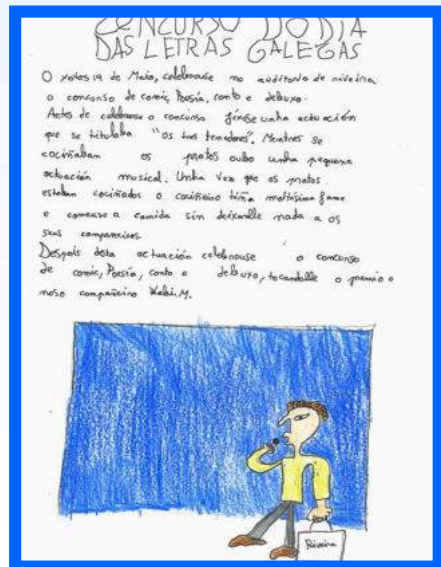 CONCURSO DO DIA
DAS LETRAS GALEGAS
O xoves 19 de Maio, celebrouse no auditorio de riveira
o concurso de comic, Poesía, conto e debuxo.
Antes de celebrarse o concurso fíxose unha actuación
que se titulaba "os tres tenedores". Mentres se
cociñaban os pratos oubo unha pequena
actuación musical. Unha vez que os pratos
estaban cociñados o cociñeiro tiña moitísima fame
e comeuse a comida sin deixarlle nada a os
seus compañeiros.
Despois desta actuación celebrouse o concurso
de comic, Poesía, conto e debuxo, tocandolle o premio o
noso compañeiro M.
Riveira